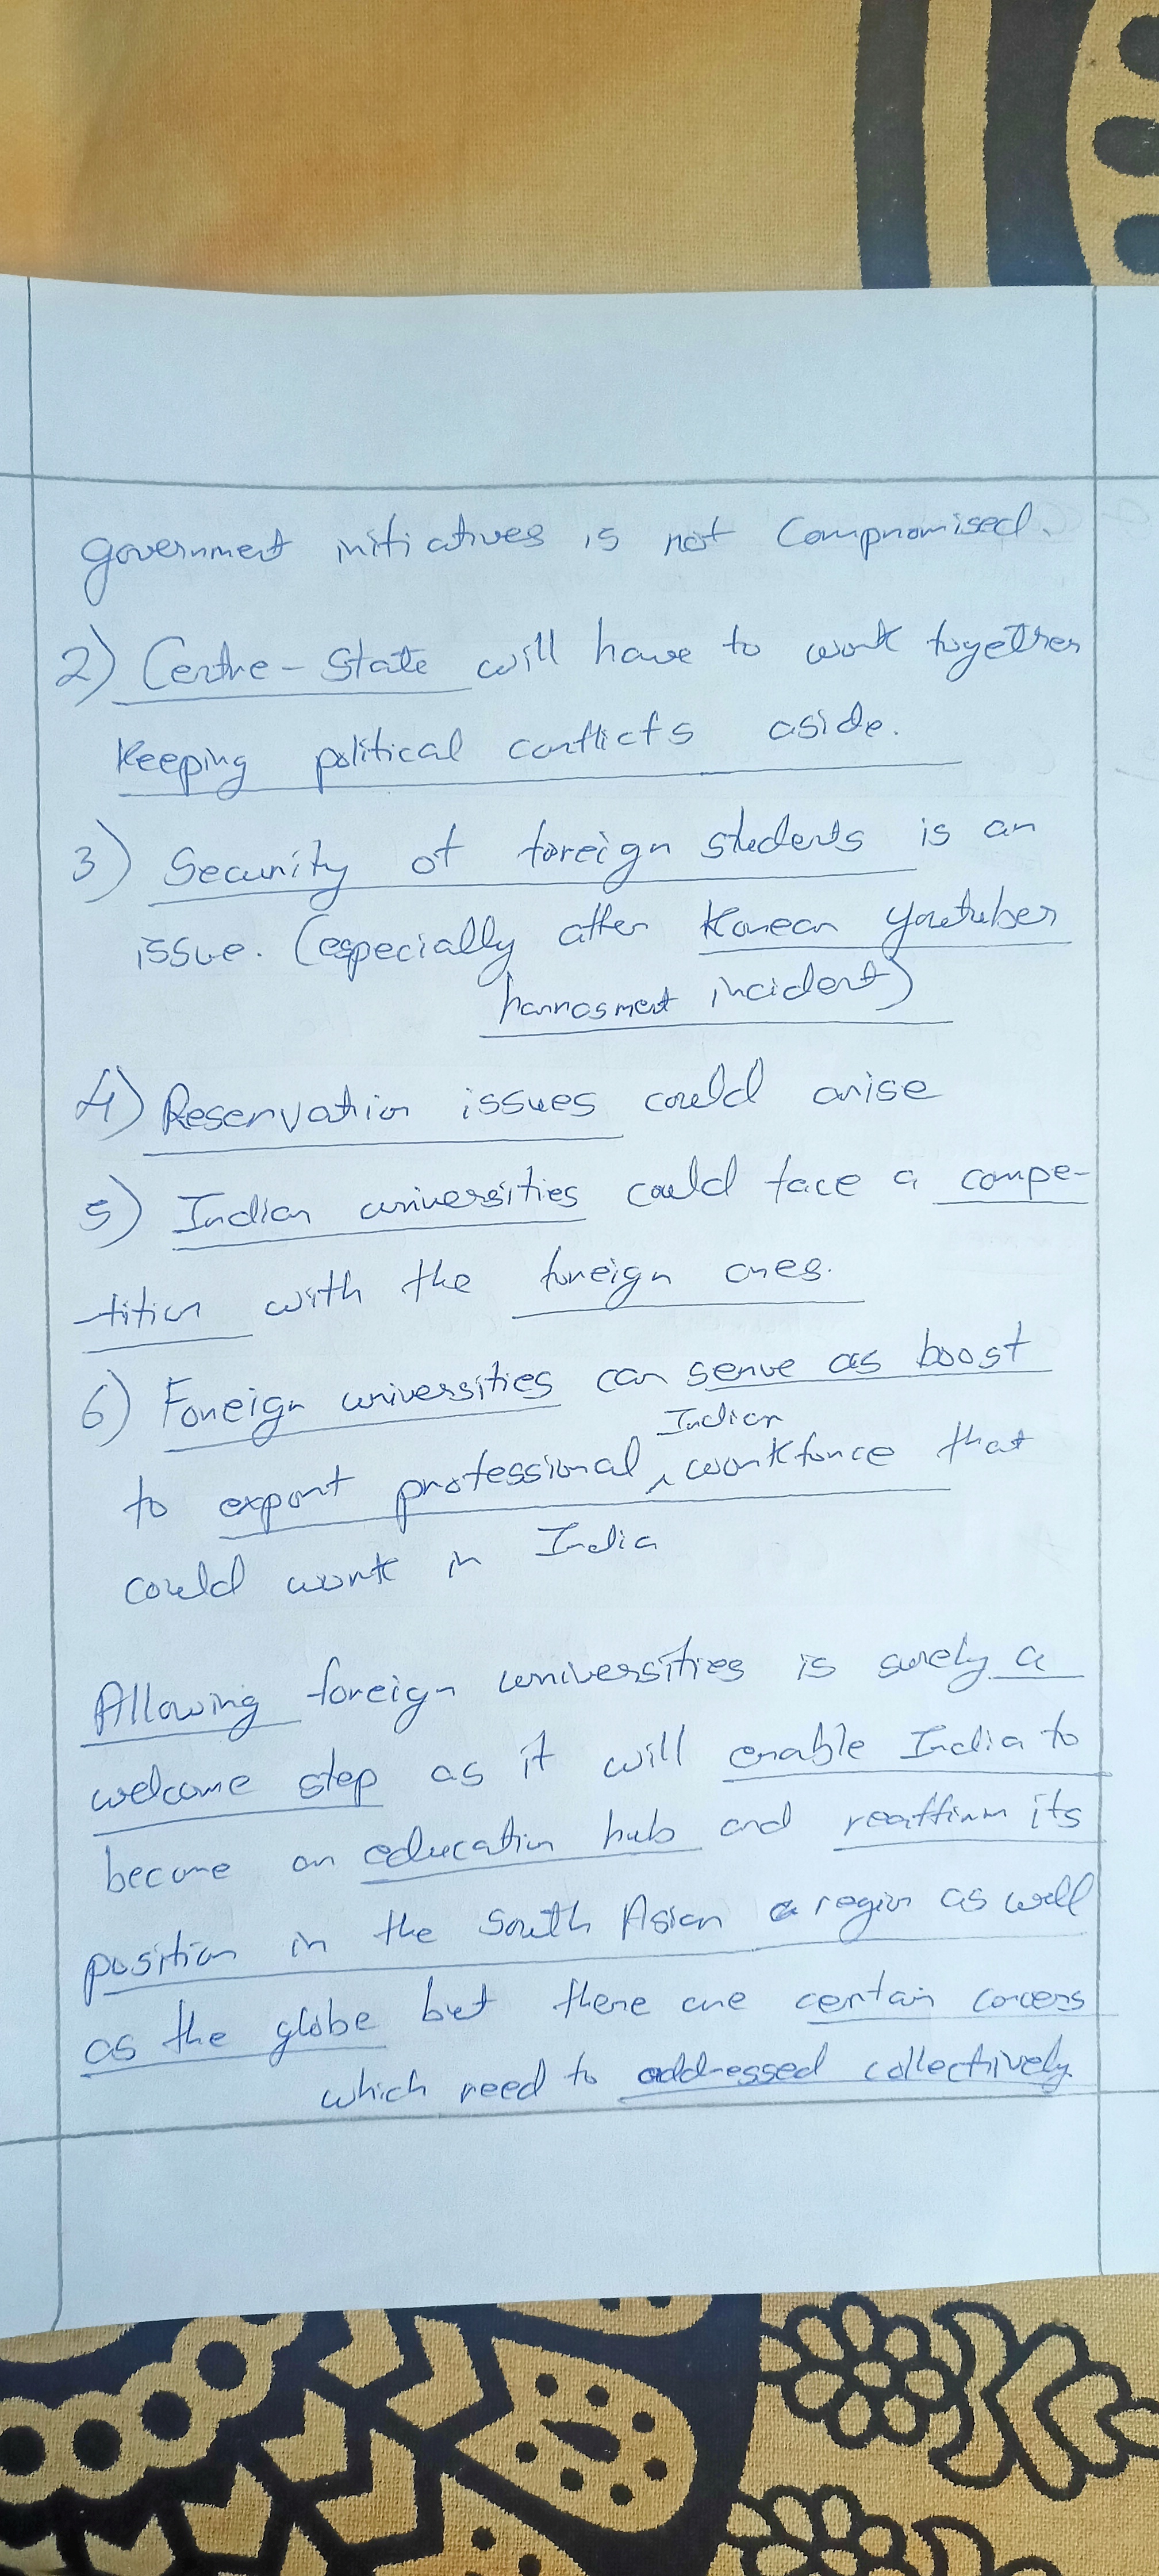 government initiatives is not compromised.
2) Centre-State will have to work together
keeping political conflicts aside.
3) Security of foreign students is an
issue. (especially after Korean youtuber
harrasment incident)
4) Reservation issues could arise
5) Indian universities could face a compe-
-tition with the foreign ones.
6) Foreign universities can serve as boost
Indian
to export professional ^ workforce that
could work in India
Allowing foreign universities is surely a
welcome step as it will enable India to
become an education hub and reaffirm its
position in the South Asian region as well
as the globe but there are certain concers
which need to addressed collectively.